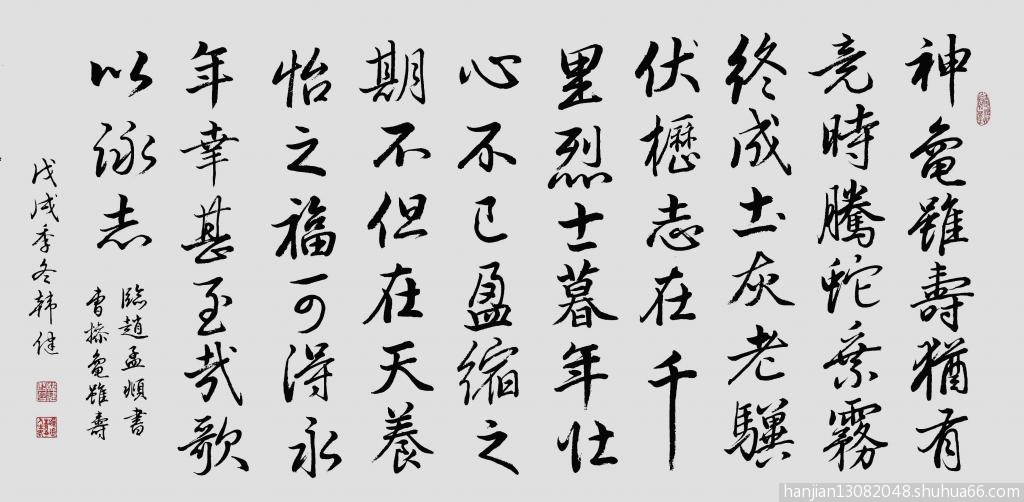 神龜雖壽猶有
竟時騰蛇乘霧
終成土灰老驥
伏櫪志在千
里烈士暮年壯
心不已盈縮之
期不但在天養
怡之福可得永
年幸甚至哉歌
以詠志
臨趙孟頫書
曹操龜雖壽
戊戌季冬韩健
hanjian13082048.shuhua66.com